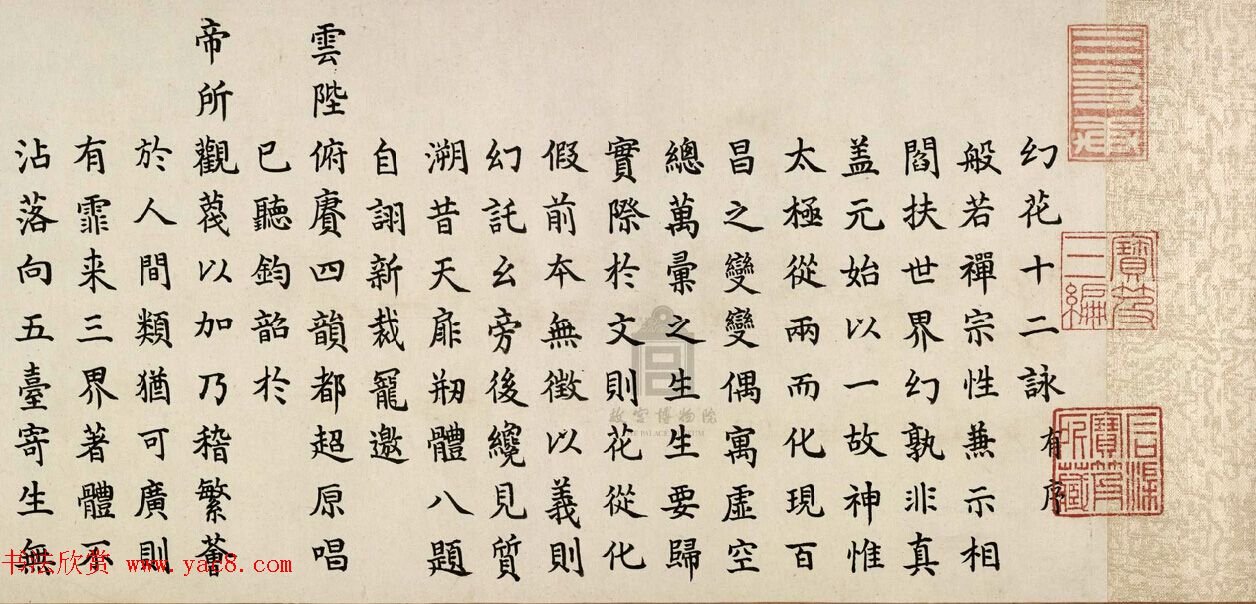 幻花十二詠 有序
般若禪宗性兼示相
閻扶世界幻孰非真
盖元始以一故神惟
太極從兩而化現百
昌之變變偶寓虛空
總萬彙之生生要歸
實際於文則花從化
假前夲無徵以義則
幻託幺旁後纔見質
溯昔天扉剏體八題
自詡新裁寵邀
雲陛俯賡四韻都超原唱
已聽鈞韶於
帝所觀蔑以加乃稽繁薈
於人間類猶可廣則
有霏来三界著體不
沾落向五臺寄生無
寶笈
三編
石渠
寶笈
所藏
故宮博物院
THE PALACE MUSEUM
书法欣赏 www.yac8.com